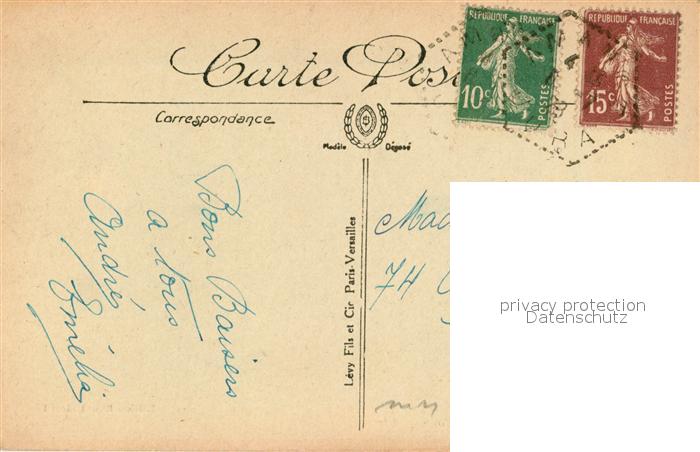 Carte Pos
RÉPUBLIQUE FRANÇAISE
10c
POSTES
RÉPUBLIQUE FRANÇAISE
15c
POSTES
Correspondance
Modèle Déposé
Bons Baisers
a tous
Andrés
Emélie
Lévy Fils et Cie Paris-Versailles
Mad
74
privacy protection
Datenschutz